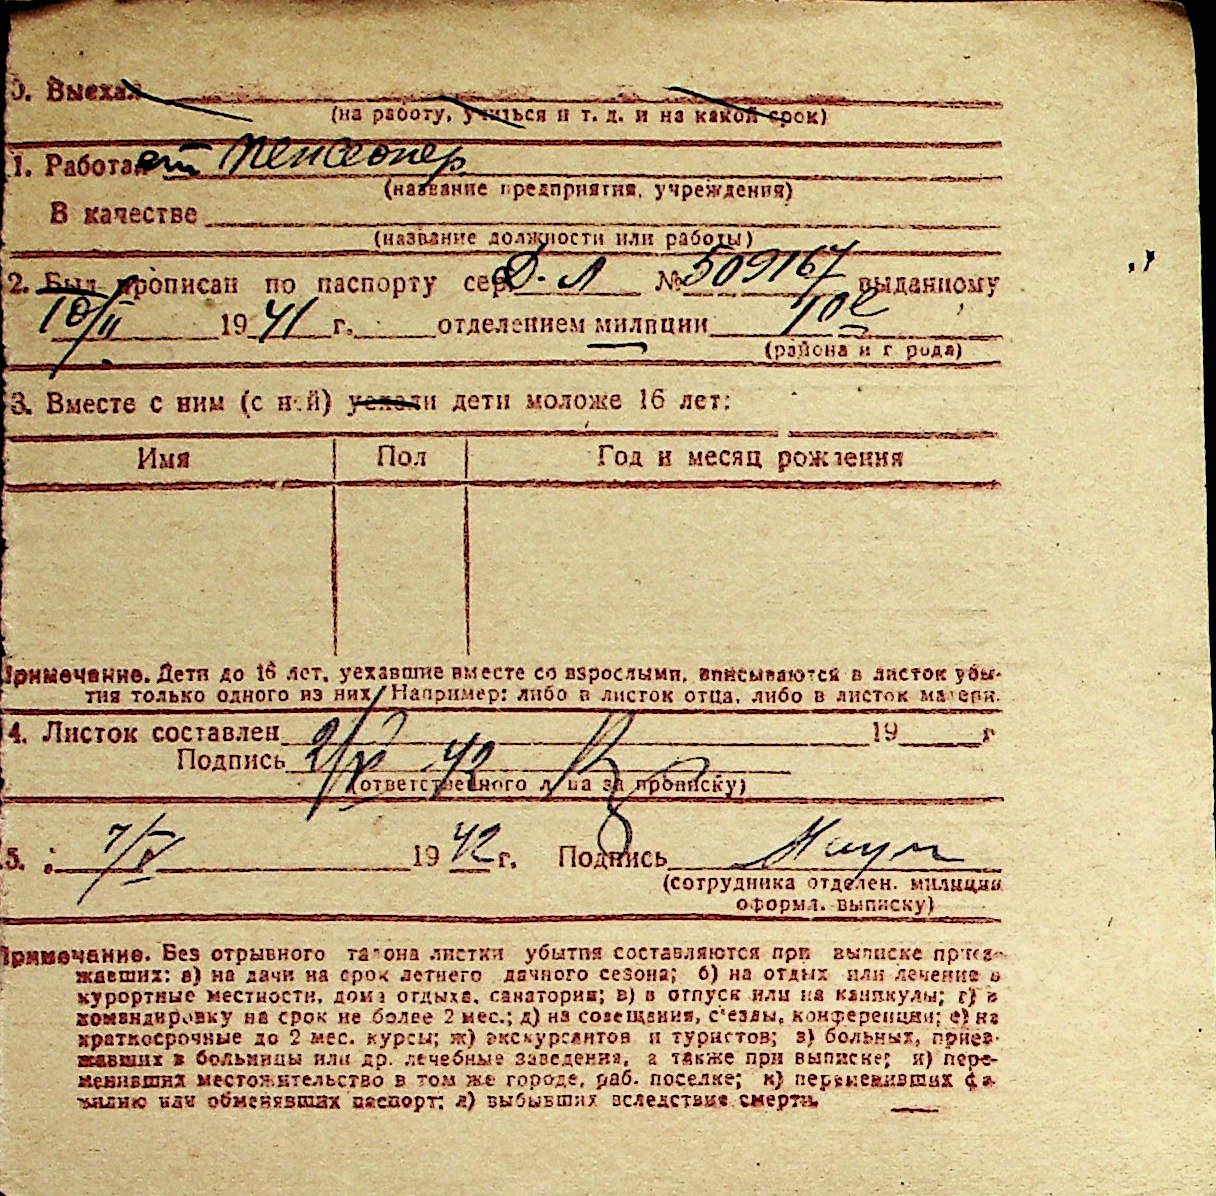 0. Выехал
(на работу, учиться и т. д. и на какой срок)
1. Работает пенсионер
(название предприятия, учреждения)
В качестве
(название должности или работы)
2. Был прописан по паспорту сер. Д-Л № 509167 выданному
10/II 1941 г. отделением милиции 10е
(района и города)
3. Вместе с ним (с ней) уехали дети моложе 16 лет:
Имя Пол Год и месяц рождения
Примечание. Дети до 16 лет, уехавшие вместе со взрослыми, вписываются в листок убы-
тия только одного из них. Например: либо в листок отца, либо в листок матери.
4. Листок составлен 19 г
Подпись 2/V 42
(ответственного лица за прописку)
5. 7/V 1942 г. Подпись
(сотрудника отделен. милиции
оформл. выписку)
Примечание. Без отрывного талона листки убытия составляются при выписке приез-
жавших: а) на дачи на срок летнего дачного сезона; б) на отдых или лечение в
курортные местности, дома отдыха, санатории; в) в отпуск или на каникулы; г) в
командировку на срок не более 2 мес.; д) на совещания, с'езды, конференции; е) на
краткосрочные до 2 мес. курсы; ж) экскурсантов и туристов; з) больных, приез-
жавших в больницы или др. лечебные заведения, а также при выписке; и) пере-
менивших местожительство в том же городе, раб. поселке; к) переменивших фа-
милию или обменявших паспорт; л) выбывших вследствие смерти.